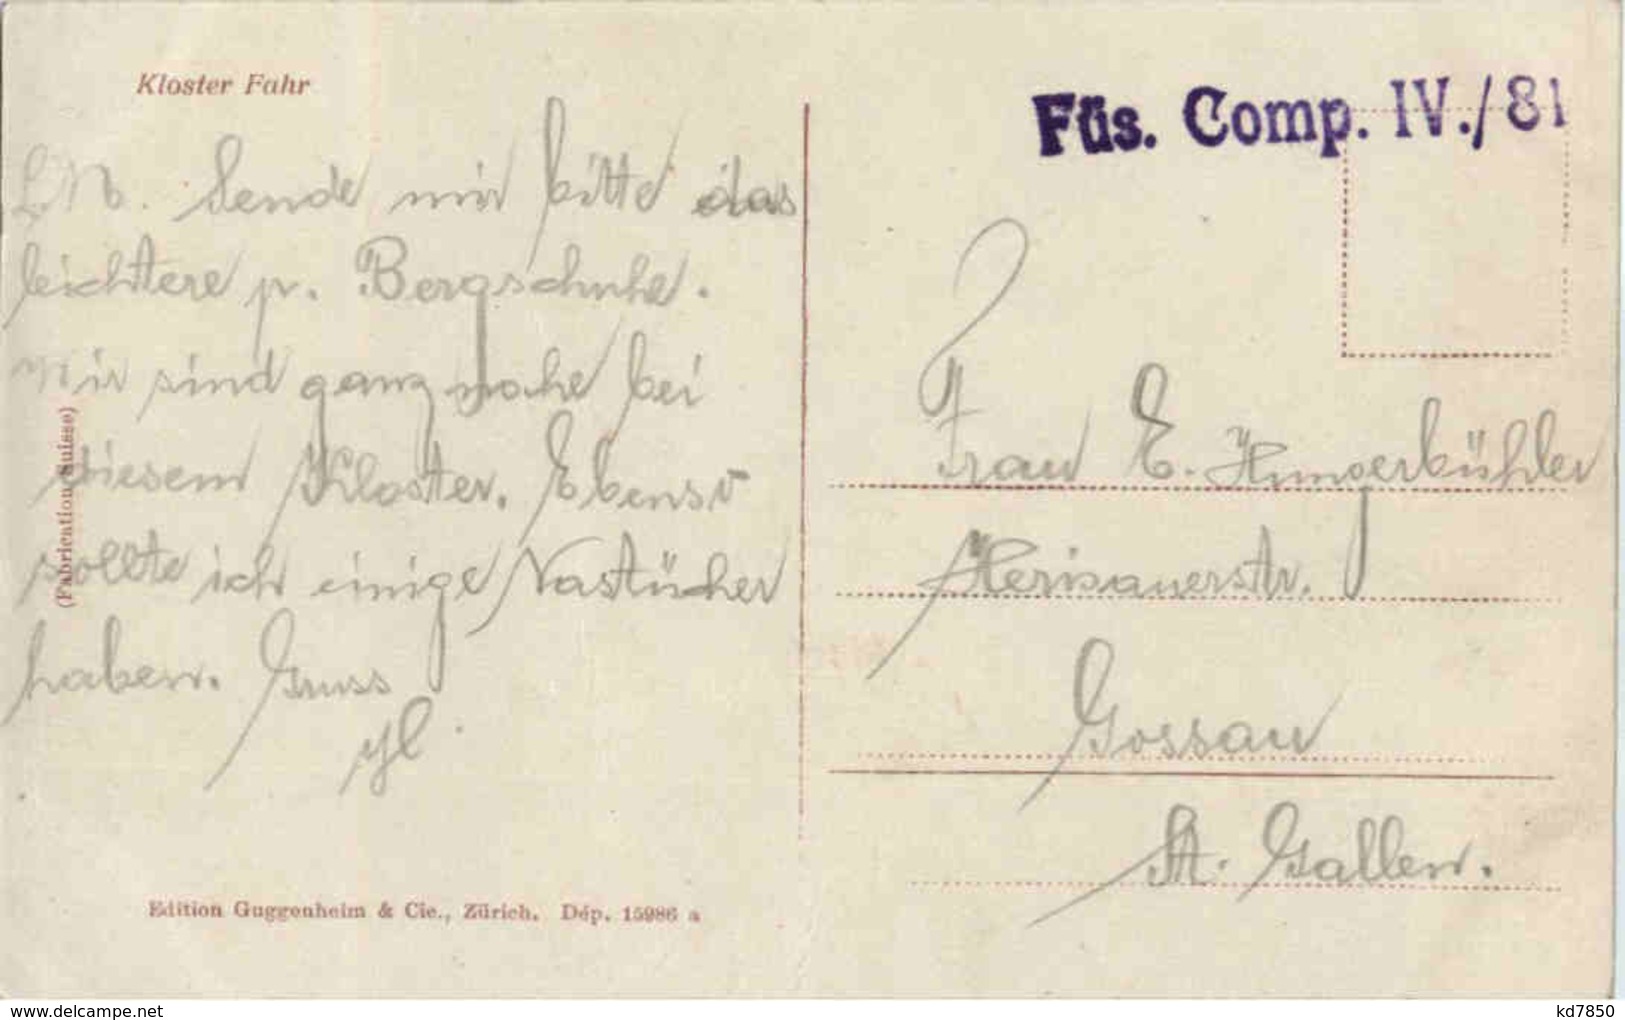 Kloster Fahr
L M. Sende mir bitte das
leichtere p. Bergschuhe.
Wir sind ganz nahe bei
diesem Kloster. Ebenso
sollte ich einige Nastücher
haben. Gruss
(Fabrication Suisse)
Edition Guggenheim & Cie., Zürich. Dép. 15986 a
Füs. Comp. IV./81
Frau E. Hungerbühler
Herisauerstr.
Gossau
St. Gallen.
delcampe.net
kd7850